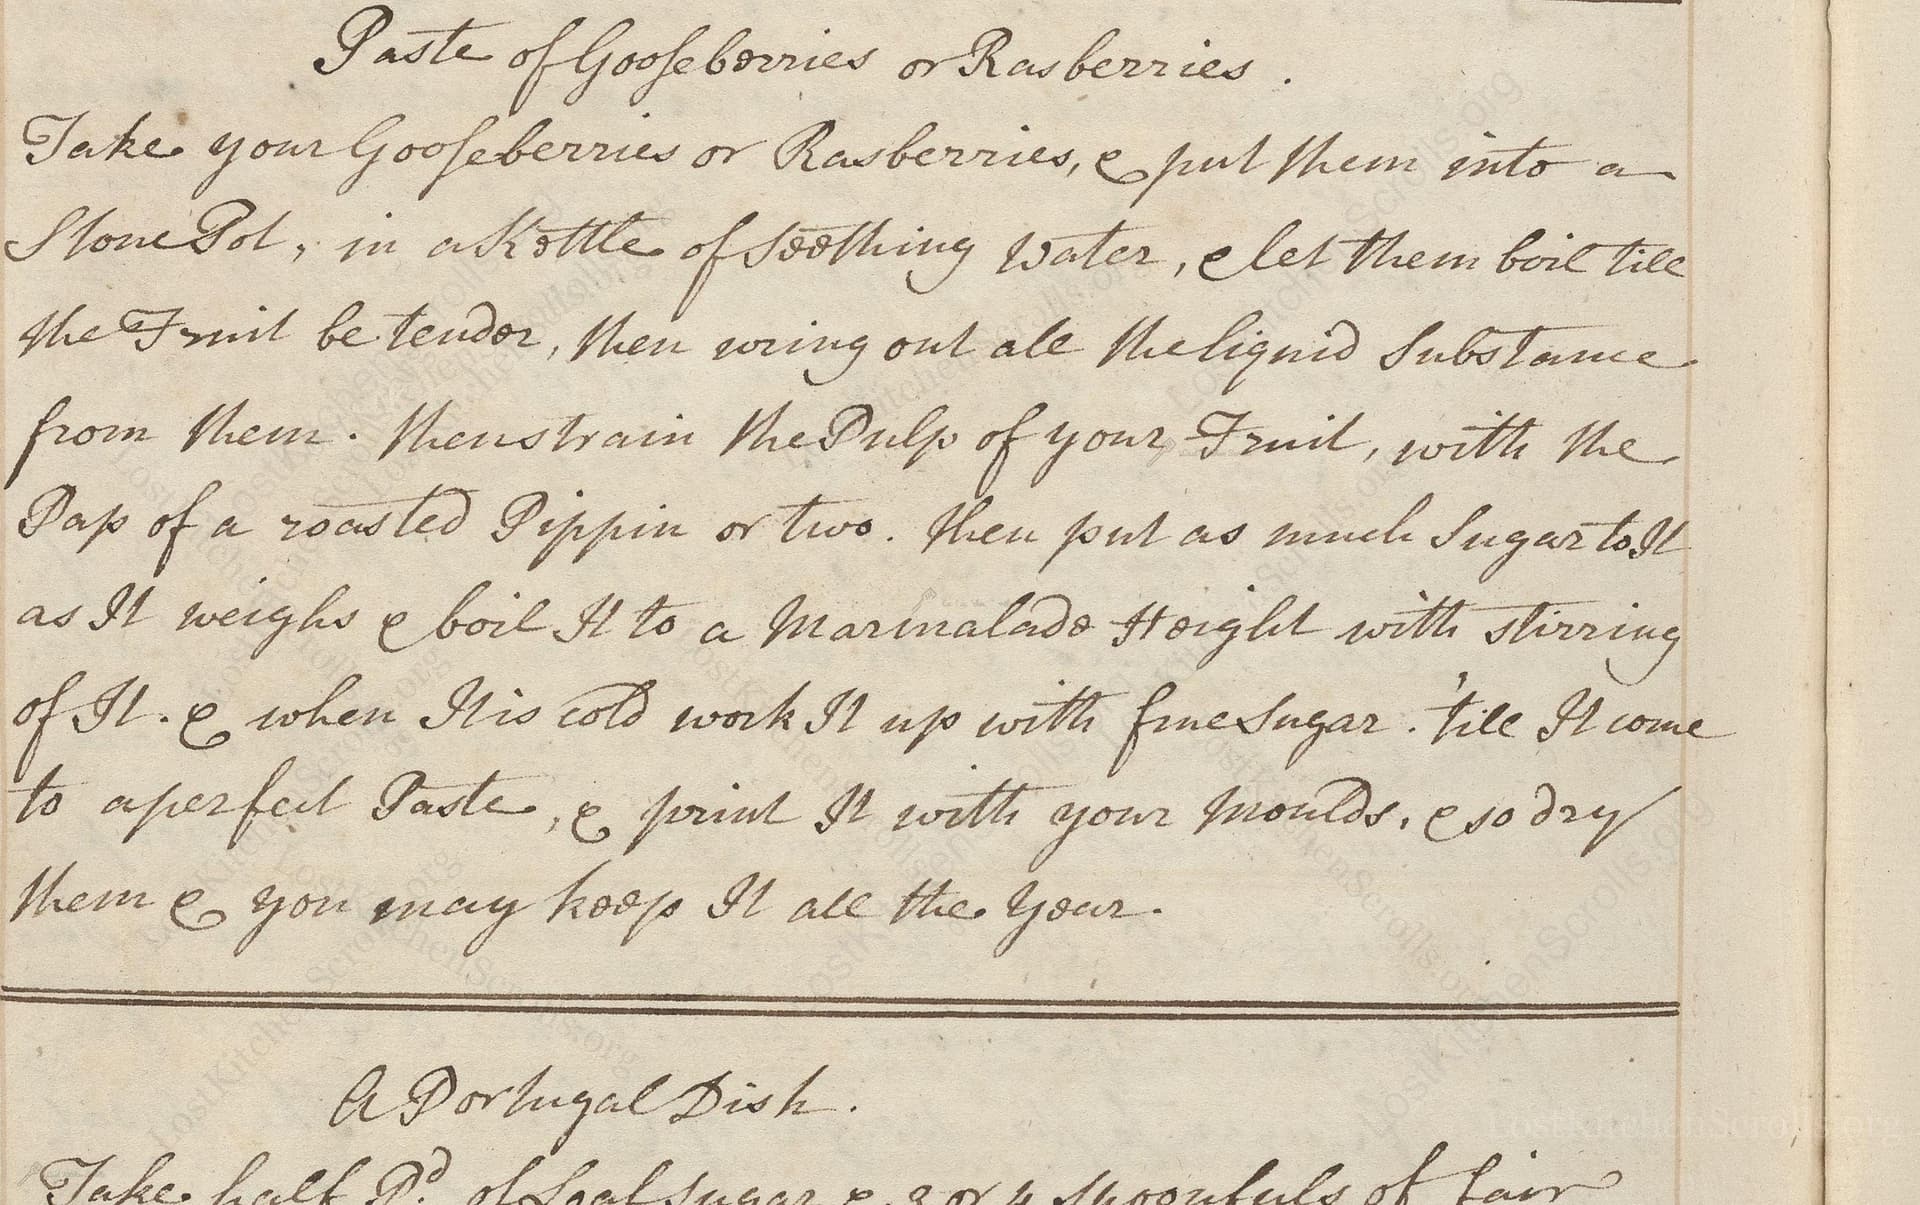 Paste of Gooseberries or Rasberries.
Take your Gooseberries or Rasberries, & put them into a
Stone Pot, in a Kettle of seething Water, & let them boil till
the Fruit be tender, then wring out all the liquid Substance
from them. then strain the Pulp of your Fruit, with the
Pap of a roasted Pippin or two. then put as much Sugar to It
as It weighs & boil It to a Marmalade Height with stirring
of It. & when It is cold work It up with fine Sugar. 'till It come
to a perfect Paste, & print It with your Moulds, & so dry
them & you may keep It all the Year.
A Portugal Dish.
Take half Pd. of Loaf Sugar & 3 or 4 Spoonfuls of fair
LostKitchenScrolls.org